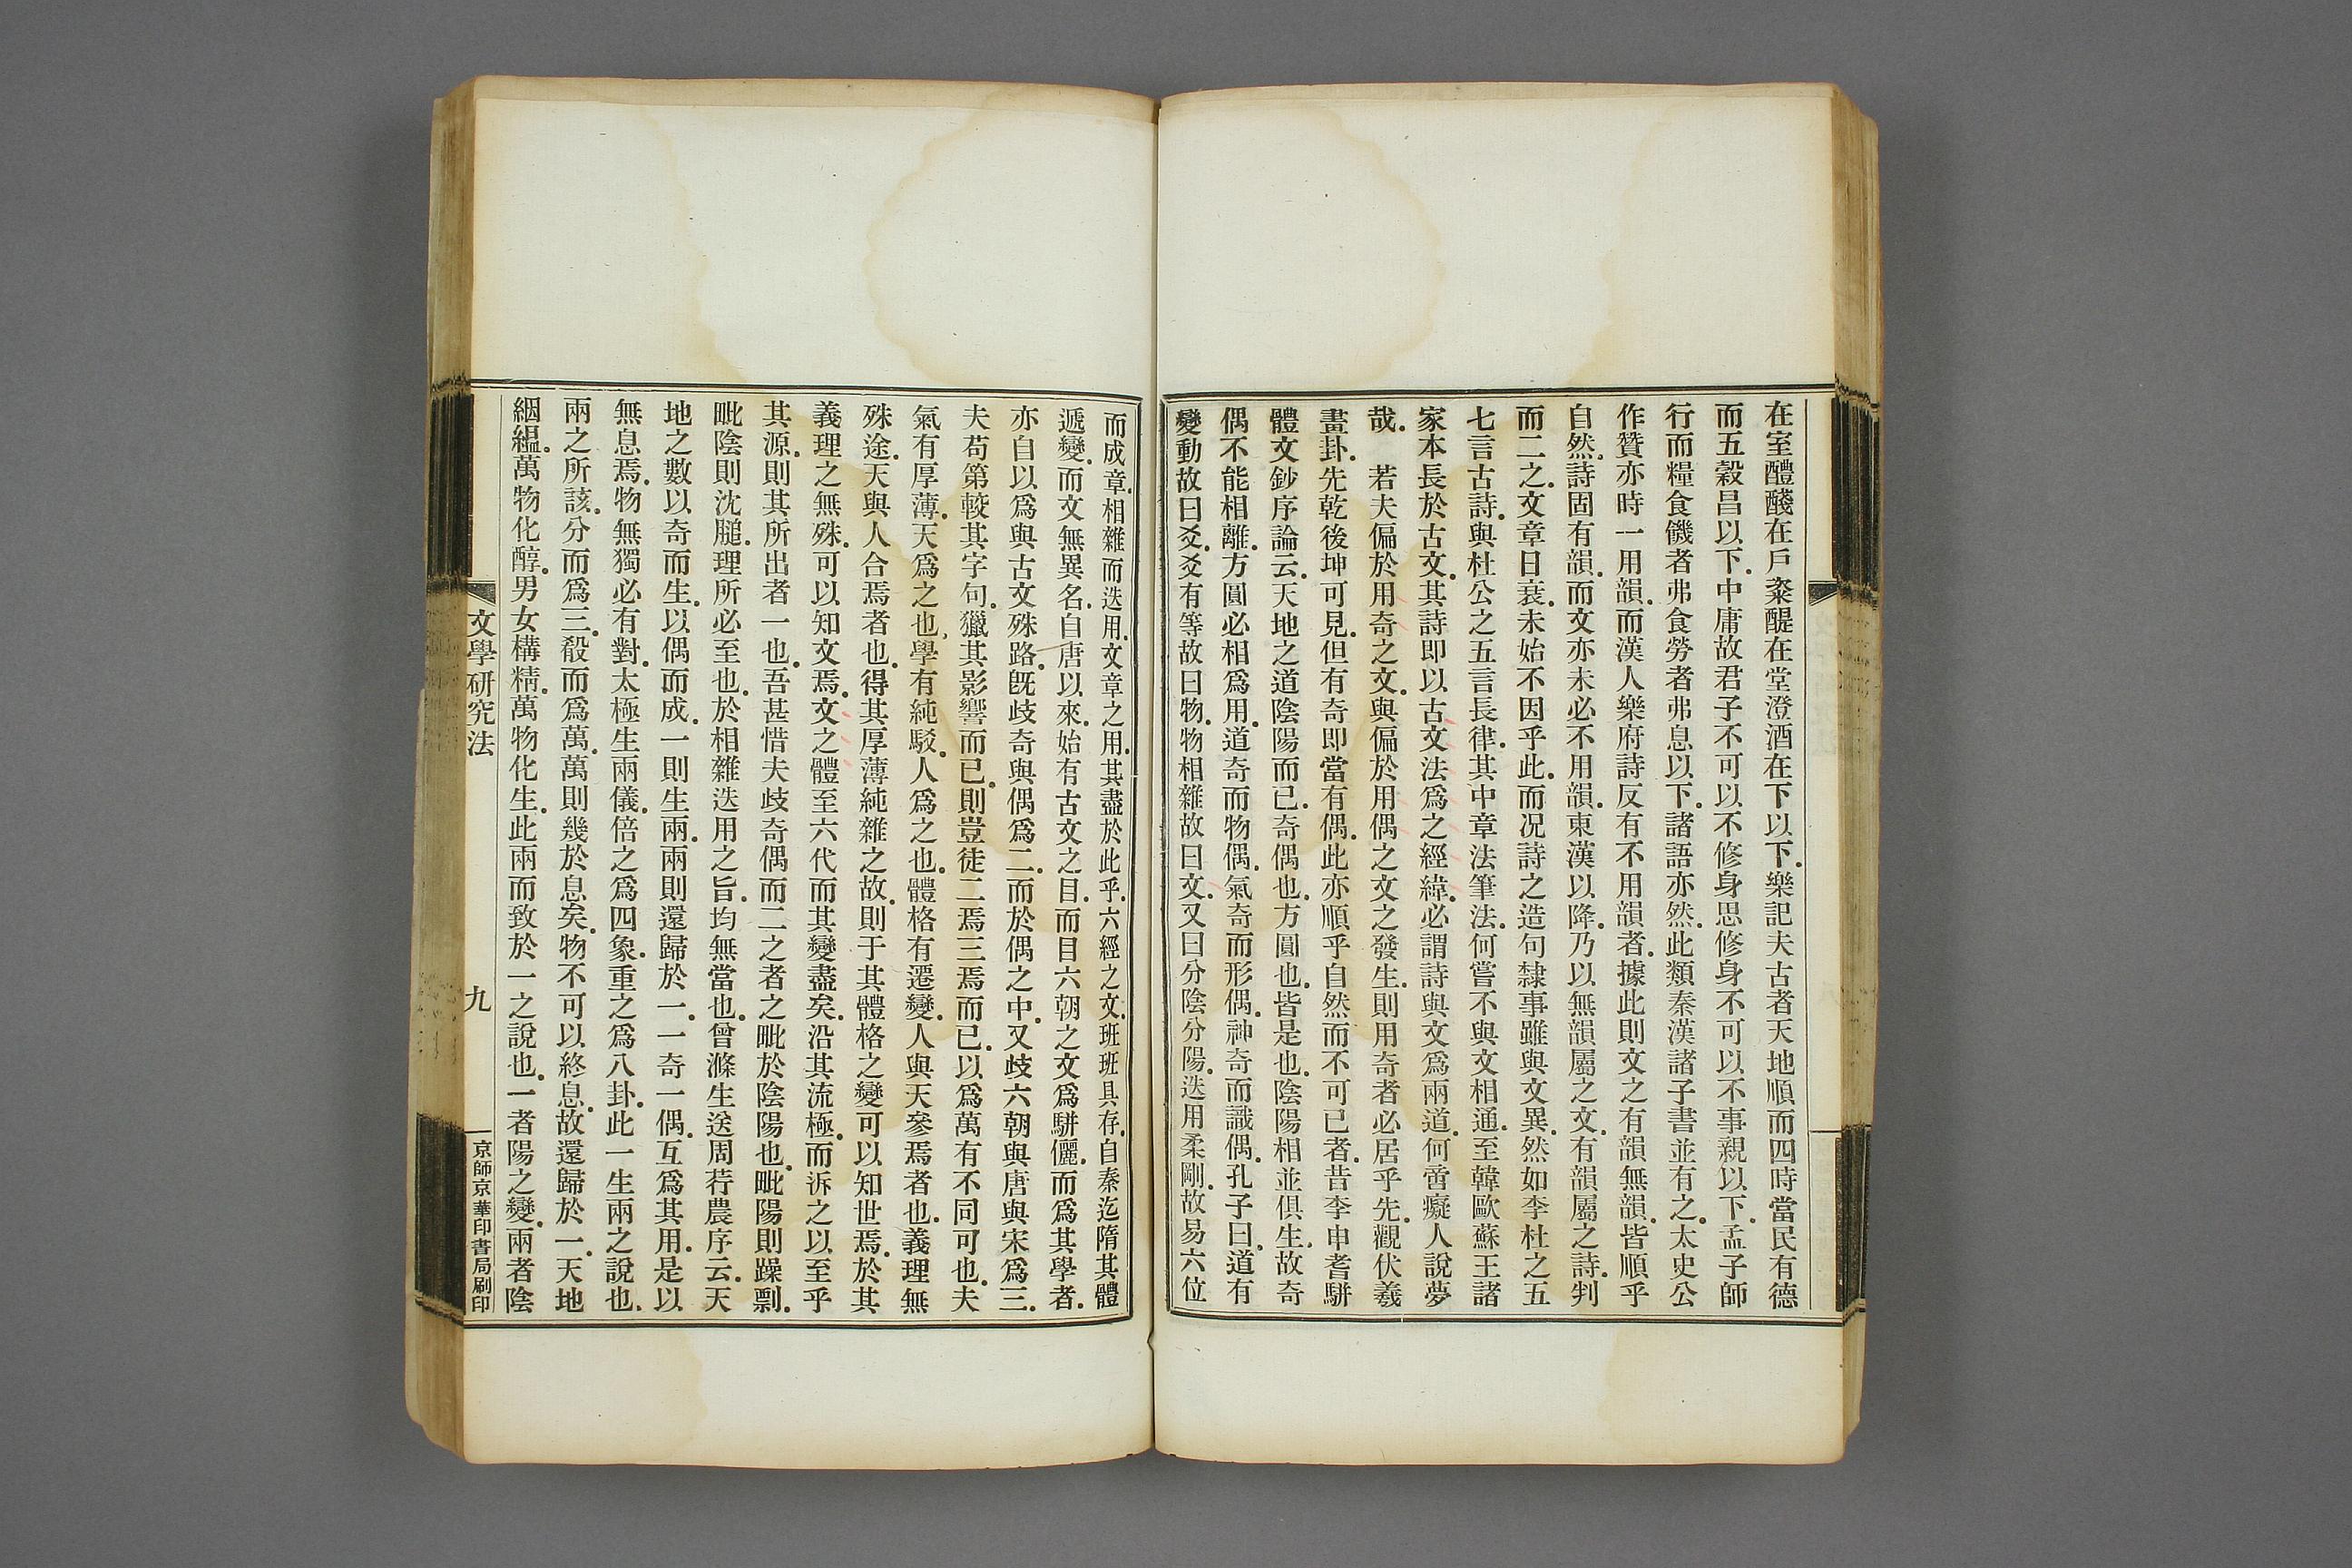 在室醴醆在戶粢醍在堂澄酒在下以下.樂記夫古者天地順而四時當民有德
而五穀昌以下.中庸故君子不可以不修身思修身不可以不事親以下.孟子師
行而糧食饑者弗食勞者弗息以下.諸語亦然.此類秦漢諸子書並有之.太史公
作贊亦時一用韻.而漢人樂府詩反有不用韻者.據此則文之有韻無韻.皆順乎
自然.詩固有韻.而文亦未必不用韻.東漢以降.乃以無韻屬之文.有韻屬之詩.判
而二之.文章日衰.未始不因乎此.而况詩之造句隸事雖與文異.然如李杜之五
七言古詩.與杜公之五言長律.其中章法筆法.何嘗不與文相通.至韓歐蘇王諸
家本長於古文.其詩即以古文法爲之經緯.必謂詩與文爲兩道.何啻癡人說夢
哉. 若夫偏於用奇之文.與偏於用偶之文之發生.則用奇者必居乎先.觀伏羲
畫卦.先乾後坤可見.但有奇即當有偶.此亦順乎自然而不可已者.昔李申耆駢
體文鈔序論云.天地之道陰陽而已.奇偶也.方圓也.皆是也.陰陽相並俱生.故奇
偶不能相離.方圓必相爲用.道奇而物偶.氣奇而形偶.神奇而識偶.孔子曰.道有
變動故曰爻.爻有等故曰物.物相雜故曰文.又曰分陰分陽.迭用柔剛.故易六位
而成章.相雜而迭用.文章之用.其盡於此乎.六經之文.班班具存.自秦迄隋其體
遞變.而文無異名.自唐以來.始有古文之目.而目六朝之文爲駢儷.而爲其學者.
亦自以爲與古文殊路.旣歧奇與偶爲二.而於偶之中.又歧六朝與唐與宋爲三.
夫苟第較其字句.獵其影響而已.則豈徒二焉三焉而已.以爲萬有不同可也.夫
氣有厚薄.天爲之也.學有純駁.人爲之也.體格有遷變.人與天參焉者也.義理無
殊途.天與人合焉者也.得其厚薄純雜之故.則于其體格之變可以知世焉.於其
義理之無殊.可以知文焉.文之體至六代而其變盡矣.沿其流極.而泝之以至乎
其源.則其所出者一也.吾甚惜夫歧奇偶而二之者之毗於陰陽也.毗陽則躁剽.
毗陰則沈膇.理所必至也.於相雜迭用之旨.均無當也.曾滌生送周荇農序云.天
地之數以奇而生.以偶而成.一則生兩.兩則還歸於一.一奇一偶.互爲其用.是以
無息焉.物無獨必有對.太極生兩儀.倍之爲四象.重之爲八卦.此一生兩之說也.
兩之所該.分而爲三.殽而爲萬.萬則幾於息矣.物不可以終息.故還歸於一.天地
絪縕.萬物化醇.男女構精.萬物化生.此兩而致於一之說也.一者陽之變.兩者陰
文學研究法
九
京師京華印書局刷印